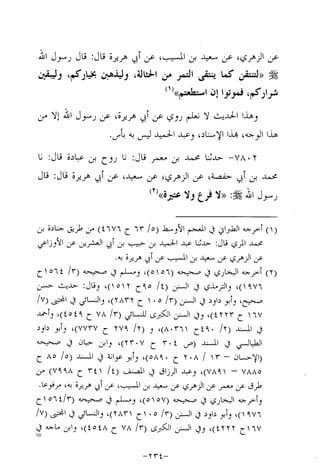 عن الزهري، عن سعيد بن المسيب، عن أبي هريرة قال: قال رسول الله
ﷺ «لتنتقن كما ينتقى التمر من الحثالة، وليذهبن بخياركم، وليبقين
شراركم، فموتوا إن استطعتم»(١)
وهذا الحديث لا نعلم روي عن أبي هريرة، عن رسول الله إلا من
هذا الوجه، بهذا الإسناد، وعبد الحميد ليس به بأس.
٧٨٠٢- حدثنا محمد بن معمر قال: نا روح بن عبادة قال: نا
محمد بن أبي حفصة، عن الزهري، عن سعيد، عن أبي هريرة قال: قال
رسول الله ﷺ: «لا فرع ولا عتيرة»(٢)
(١) أخرجه الطبراني في المعجم الأوسط (٥ / ٦٣ ح ٤٦٧٦) من طريق جنادة بن
محمد المري قال: حدثنا عبد الحميد بن حبيب بن أبي العشرين عن الأوزاعي
عن الزهري عن ابن المسيب عن أبي هريرة به.
(٢) أخرجه البخاري في صحيحه (٥١٥٦)، ومسلم في صحيحه (٣/ ١٥٦٤ ح
١٩٧٦)، والترمذي في السنن (٤/ ٩٥ ح ١٥١٢)، وقال: حديث حسن
صحيح، وأبو داود في السنن (٣/ ١٠٥ ح ٢٨٣٢)، والنسائي في المجتبى (٧/
١٦٧ ح ٤٢٢٣)، وفي السنن الكبرى للنسائي (٣/ ٧٨ ح ٤٥٤٩)، وأحمد
في المسند (٢/ ٤٩٠ ح ١٠٣٦٨)، و (٢/ ٢٧٩ ح ٧٧٣٧)، وأبو داود
الطيالسي في المسند (ص ٣٠٤ ح ٢٣٠٧)، وابن حبان في صحيحه
(الإحسان - ١٣ / ٢٠٨ ح ٥٨٩٠)، وأبو عوانة في المسند (٥ / ٨٥ ح
٧٨٨٥ - ٧٨٩١)، وعبد الرزاق في المصنف (٤/ ٣٤١ ح ٧٩٩٨) من
طرق عن معمر عن الزهري عن سعيد بن المسيب، عن أبي هريرة به، مرفوعا.
وأخرجه البخاري في صحيحه (٥١٥٧)، ومسلم في صحيحه (٣/ ١٥٦٤ ح
١٩٧٦)، وأبو داود في السنن (٣/ ١٠٥ ح ٢٨٣١)، والنسائي في المجتبى (٧/
١٦٧ ح ٤٢٢٢)، وفي السنن الكبرى (٣/ ٧٨ ح ٤٥٤٨)، وابن ماجه في
-٢٣٤-